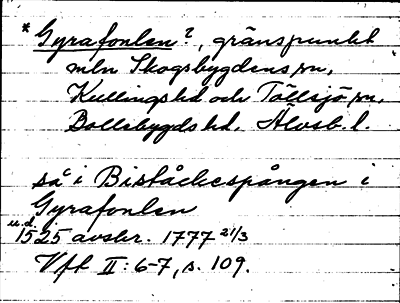 *Gyrafonlen?, gränspunkt
mln Skogsbygdens sn,
Kullings hd och Töllsjö sn,
Bollebygds hd, Älvsb. l.
så i Biståckespången i
Gyrafonlen
u.d.
1525 avskr. 1777 21/3
Vfk II: 6-7, s. 109.